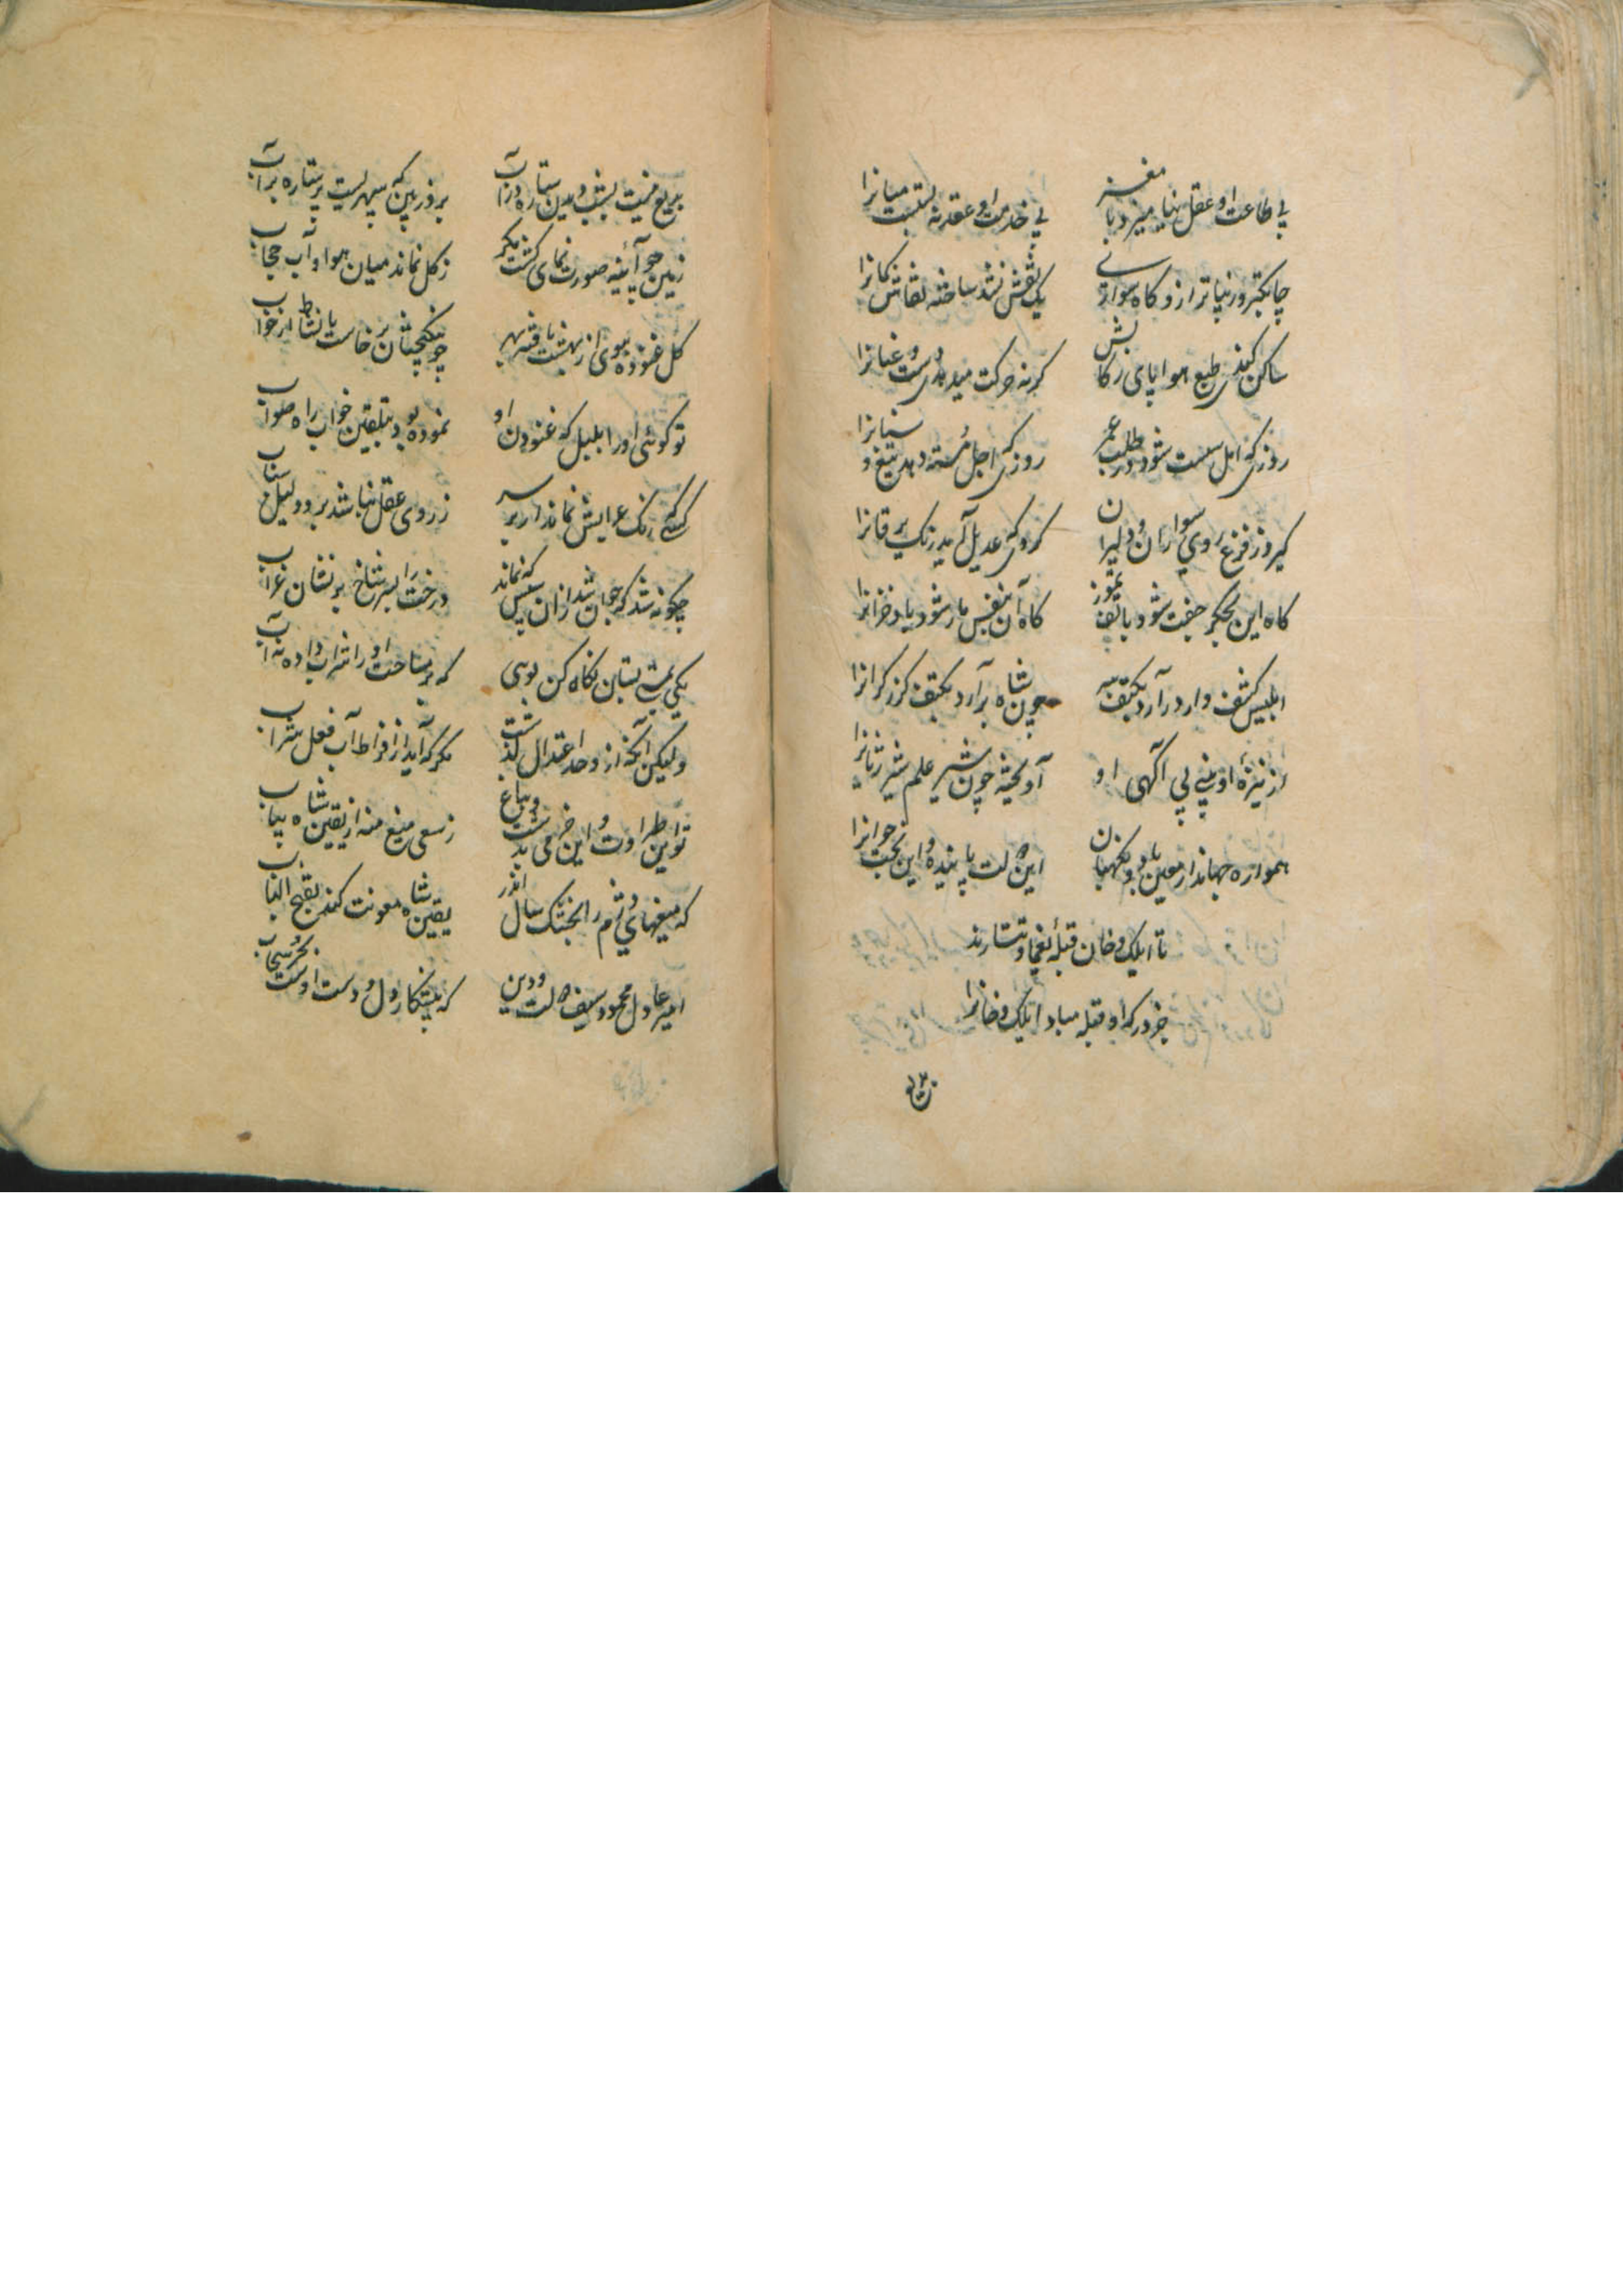 بی طاعت او عقل نیامیزد با مغز
بی خدمت او عقد نه بست میانرا
چابکتر و زیباتر ازو کاه سواری
یک نقش نشد ساخته نقاش کمانرا
ساکن کندی طبع هوا پای رکابش
کرنه حرکت میدهدی دست عنانرا
روزی که امل سست شود در طلب عمر
روزی که اجل دسته دهد تیغ و سنانرا
کیرو ز فزع روی سواران و دلیران
کردی که عدیل آمد رنک یرقانرا
کاه این بجکر جفت شود با تف تموز
کاه آن بنفس یار شود باد خزانرا
ابلیس کشف وار در آرد بکتف سر
چون شاه برآرد بکتف کرز کرانرا
از نیزه او بینی بی آکهی او
آویخته چون شیر علم شیر ژیانرا
همواره جهاندار معین باد و نکهبان
این دولت پاینده و این بخت جوانرا
تا ایلک و خان قبله یغما و تتارند
جز درکه او قبله مباد ایلک و خانرا
بریع نیست بشب بدین ستاره در آب
بروز بین که سپهریست پر ستاره بر آب
زمین چو آئینه صورت نمای کشت مکر
ز کل نماند میان هوا و آب حجاب
کل غنوده ببوی از بهشت یافته بهر
چو نیکبختان برخاست با نشاط از خواب
تو کوئی او را بلبل که غنودن او
نموده بود بتلقین خواب راه صواب
کسی که رنک عرایش نماند ار بر سر
ز روی عقل نباشد برو دلیل شتاب
چکونه شد که جوان شد ازان سپس که نماند
درخت را بسر شاخ بر نشان غراب
یکی بشب بستان نکاه کن بوی
که بر مساحت او را شراب داده نه آب
ولیکن آنکه از و حد اعتدال کذشت
مکر که آید از افراط آب فعل شراب
تو این طراوت و این خرمی بدشت و بباغ
ز سعی میغ منه از یقین شاه بیاب
که میغهای دژم را بخشک سال اندر
یقین شاه معونت کند بفتح الباب
امیر عادل محمود سیف دولت و دین
که پیشکار دل و دست اوست بحر و سحاب